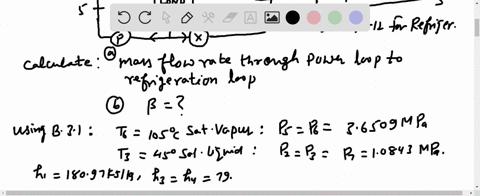 5
P X -12 for Refriger.
calculate: (a) mass flow rate through power loop to
refrigeration loop
(b) β = ?
using B.3.1: T6 = 105°C Sat. Vapur : P5 = P6 = 3.6509 MPa
T3 = 45° Sal. liquid : P2 = P3 = P7 = 1.0843 MPa.
h1 = 180.97 kJ/k, h3 = h4 = 79.